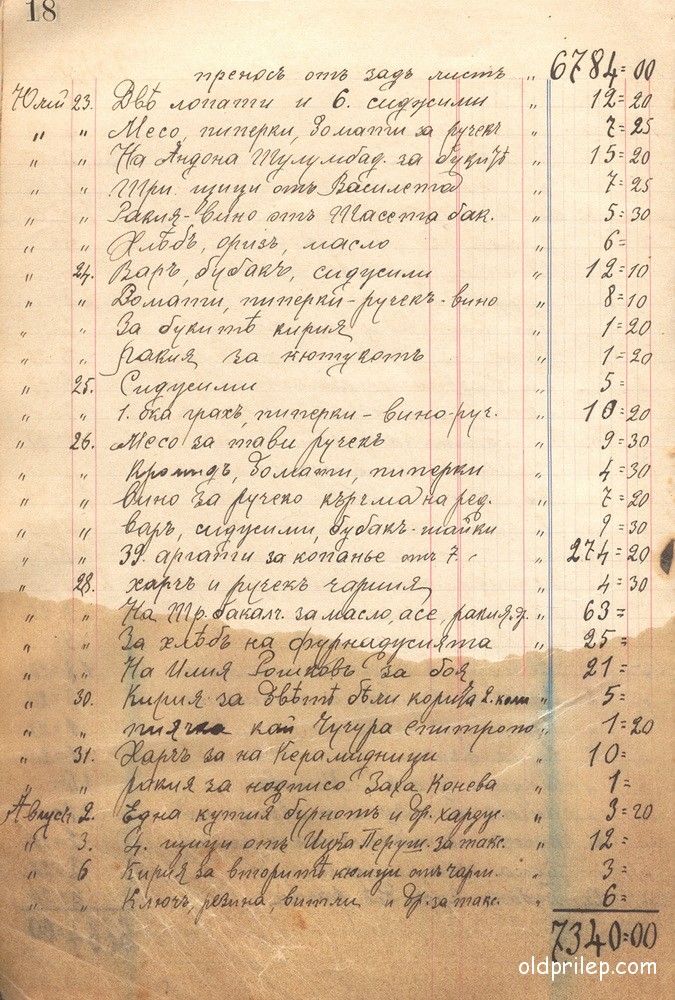 18
преносъ отъ задъ листъ " 6784=00
Юлий 23. Двѣ лопати и 6. сидусими " 12=20
" " Месо, пиперки, домати за ручекъ 7=25
" " На Андона Шулумбад. за букитѣ " 15=20
" " Три. щици отъ Василета " 7=25
" " Ракия-вино отъ Тасета бак. " 5=30
" " Хлѣбъ, оризъ, масло " 6=
" 24. Варъ, бубакъ, сидусими " 12=10
" " Домати, пиперки-ручекъ-вино " 8=10
" " За букитѣ кирия " 1=20
" " Ракия за кютукотъ " 1=20
" 25. Сидусими " 5=
" " 1. ока грахъ, пиперки-вино-руч. " 10=20
" 26. Месо за тави ручекъ " 9=30
" " Кромидъ, домати, пиперки " 4=30
" " Вино за ручеко кърчма на ред. " 7=20
" " варъ, сидусими, бубакъ-шайки " 9=30
" " 39. аргати за копанье отъ 7. " 274=20
" 28. харчъ и ручекъ чаршия " 4=30
" " На Тр. бакалч. за масло, асе, ракия.др. " 63=
" " За хлѣбъ на фурнадусията " 25=
" " На Илия Рошковъ за боя " 21=
" 30. Кирия за двѣтѣ бѣли корита 2. коли " 5=
" " кай Чучура епитропо " 1=20
" 31. Харчъ за на Керамидници " 10=
" " ракия за подписо Заха Конева " 1=
Август. 2. Една кутия бурнотъ и др. хардус. " 3=20
" 3. 4. щици отъ Ицка Перуш. за такс. " 12=
" 6 Кирия за вторитѣ кюмци отъ чарш. " 3=
" " Ключъ, резина, витли и др. за такс. " 6=
7340=00
oldprilep.com